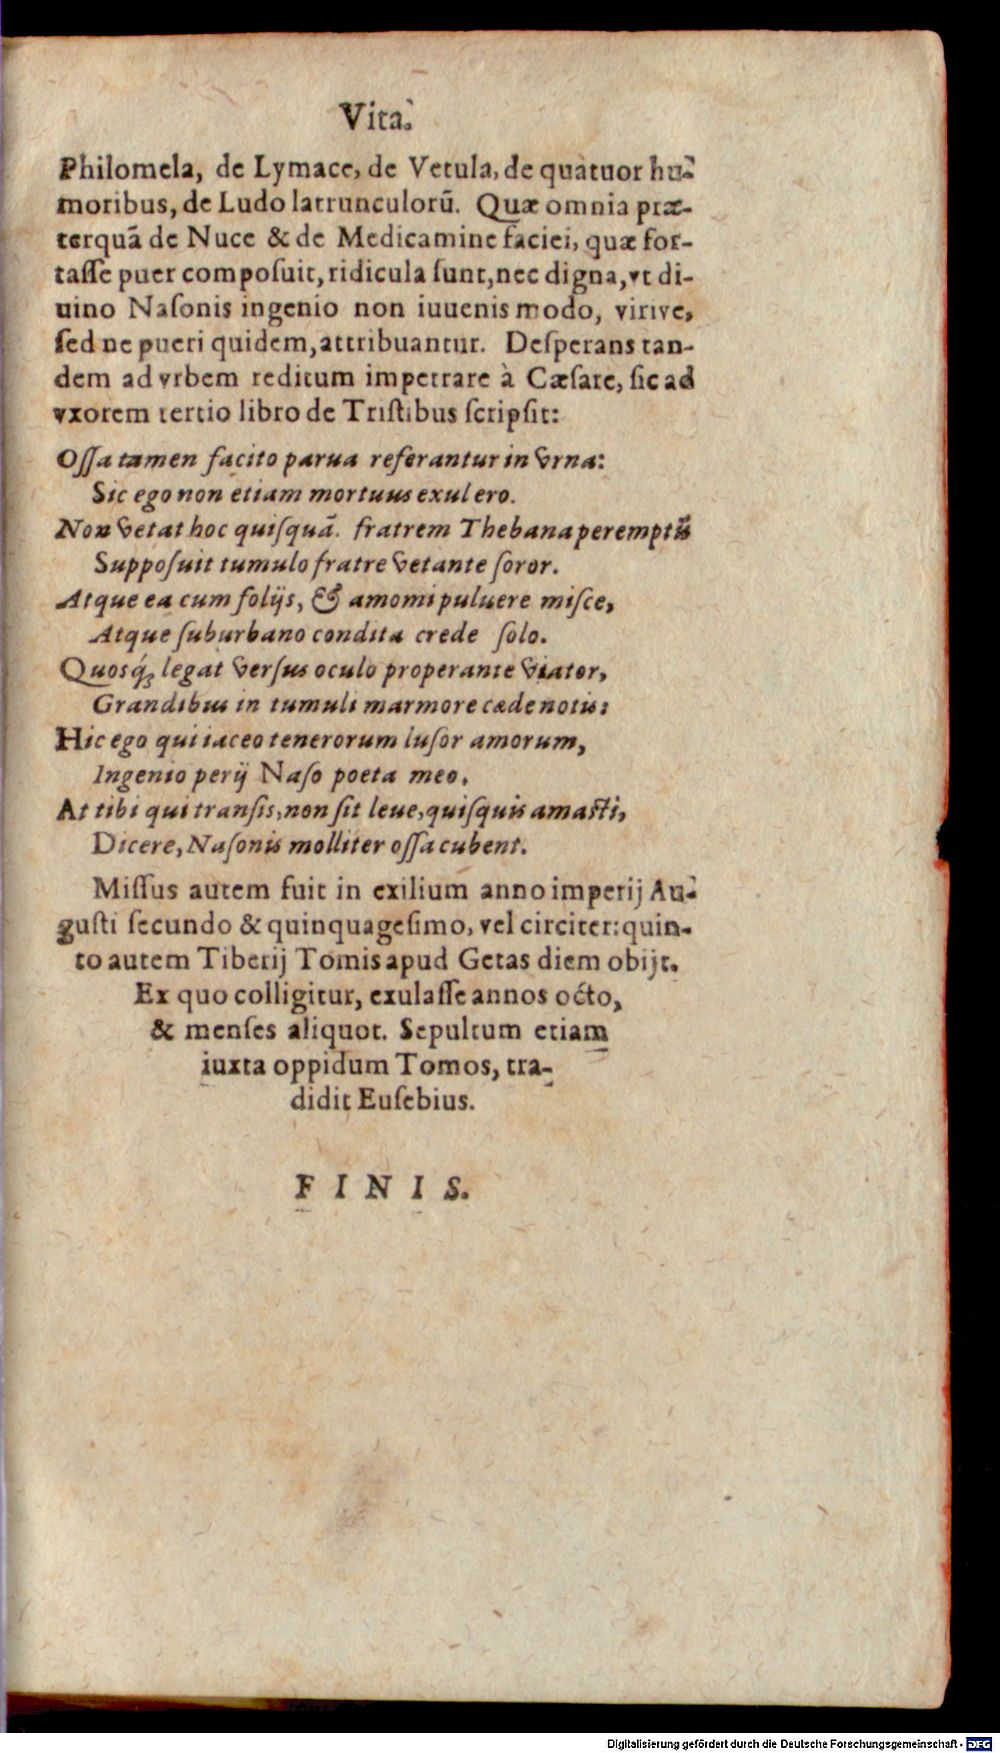 Vita.
Philomela, de Lymace, de Vetula, de quatuor hu-
moribus, de Ludo latrunculorũ. Quæ omnia præ-
terquã de Nuce & de Medicamine faciei, quæ for-
tasse puer composuit, ridicula sunt, nec digna, vt di-
uino Nasonis ingenio non iuuenis modo, virive,
sed ne pueri quidem, attribuantur. Desperans tan-
dem ad vrbem reditum impetrare à Cæsare, sic ad
vxorem tertio libro de Tristibus scripsit:
Ossa tamen facito parua referantur in vrna:
Sic ego non etiam mortuus exul ero.
Non vetat hoc quisquã. fratrem Thebana peremptũ
Supposuit tumulo fratre vetante soror.
Atque ea cum folijs, & amomi puluere misce,
Atque suburbano condita crede solo.
Quosq́; legat versus oculo properante viator,
Grandibus in tumuli marmore cæde notis:
Hic ego qui iaceo tenerorum lusor amorum,
Ingenio perij Naso poeta meo.
At tibi qui transis, non sit leue, quisquis amasti,
Dicere, Nasonis molliter ossa cubent.
Missus autem fuit in exilium anno imperij Au-
gusti secundo & quinquagesimo, vel circiter: quin-
to autem Tiberij Tomis apud Getas diem obijt.
Ex quo colligitur, exulasse annos octo,
& menses aliquot. Sepultum etiam
iuxta oppidum Tomos, tra-
didit Eusebius.
FINIS.
Digitalisierung gefördert durch die Deutsche Forschungsgemeinschaft - DFG